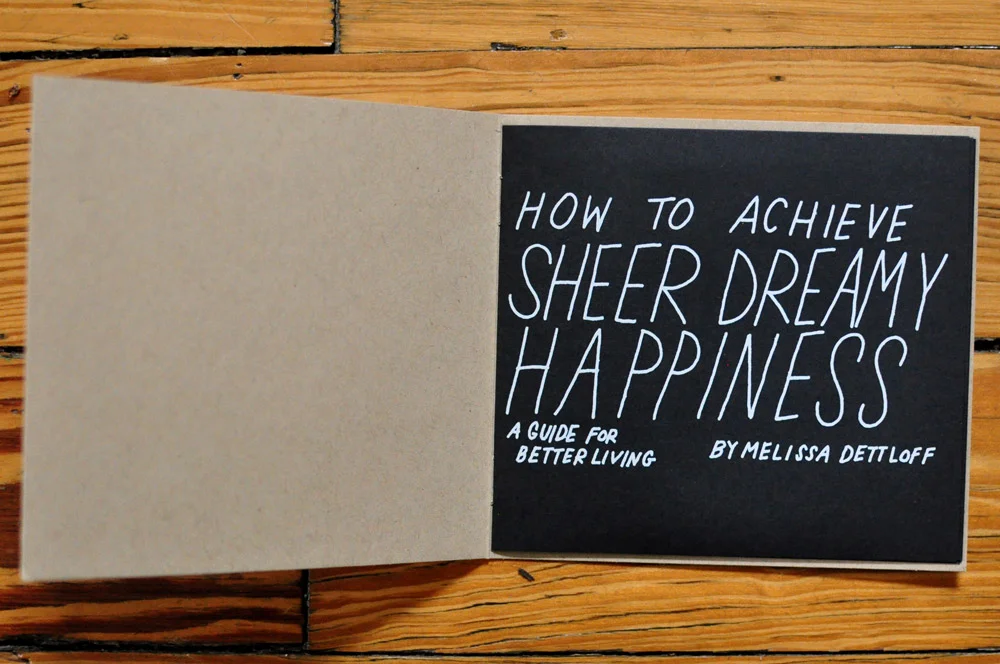 HOW TO ACHIEVE
SHEER DREAMY
HAPPINESS
A GUIDE FOR
BETTER LIVING
BY MELISSA DETTLOFF